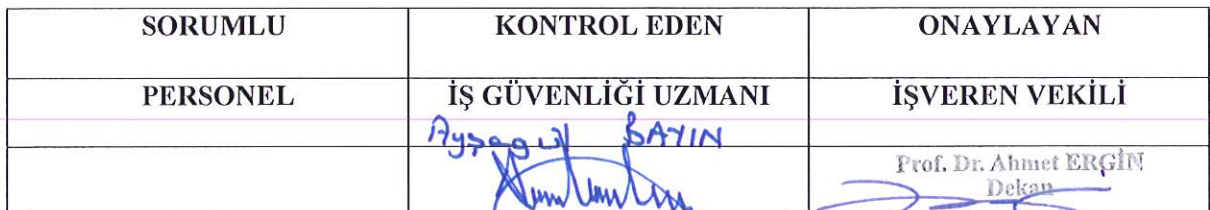 SORUMLU KONTROL EDEN ONAYLAYAN
PERSONEL İŞ GÜVENLİĞİ UZMANI İŞVEREN VEKİLİ
Ayşegül BAYIN
Prof. Dr. Ahmet ERGİN
Dekan